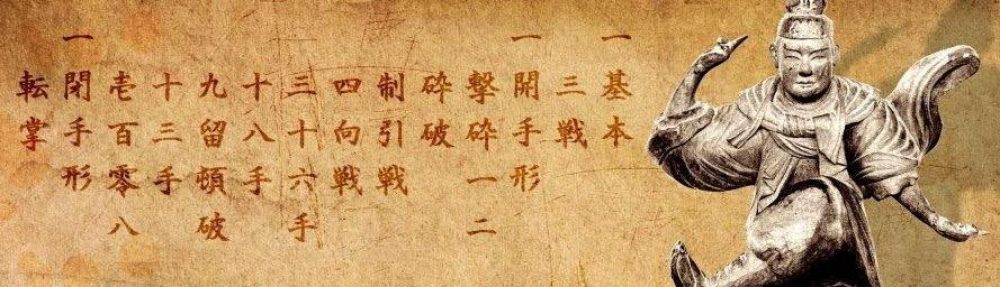 一基本
三戦
一開手形
撃砕一二
砕破
制引戦
四向戦
三十六手
十八手
九留頓破
十三手
壱百零八
一閉手形
転掌